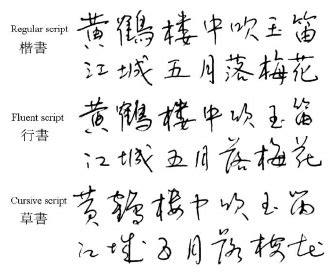 Regular script 黄鶴楼中吹玉笛
楷書 江城五月落梅花
Fluent script 黄鶴楼中吹玉笛
行書 江城五月落梅花
Cursive script 黄鶴楼中吹玉笛
草書 江城五月落梅花